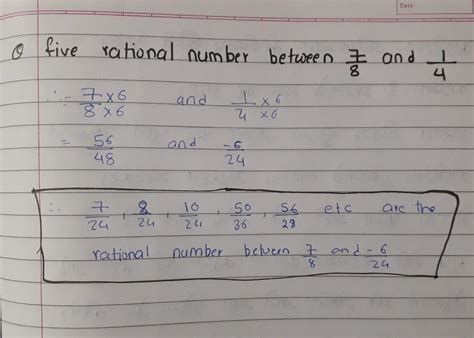 Date:
Q five rational number between 7/8 and 1/4
∴ - 7/8 ×6/×6 and 1/4 ×6/×6
= 56/48 and -6/24
∴ 7/24, 8/24, 10/24, 50/36, 56/28 etc are the
rational number between 7/8 and -6/24